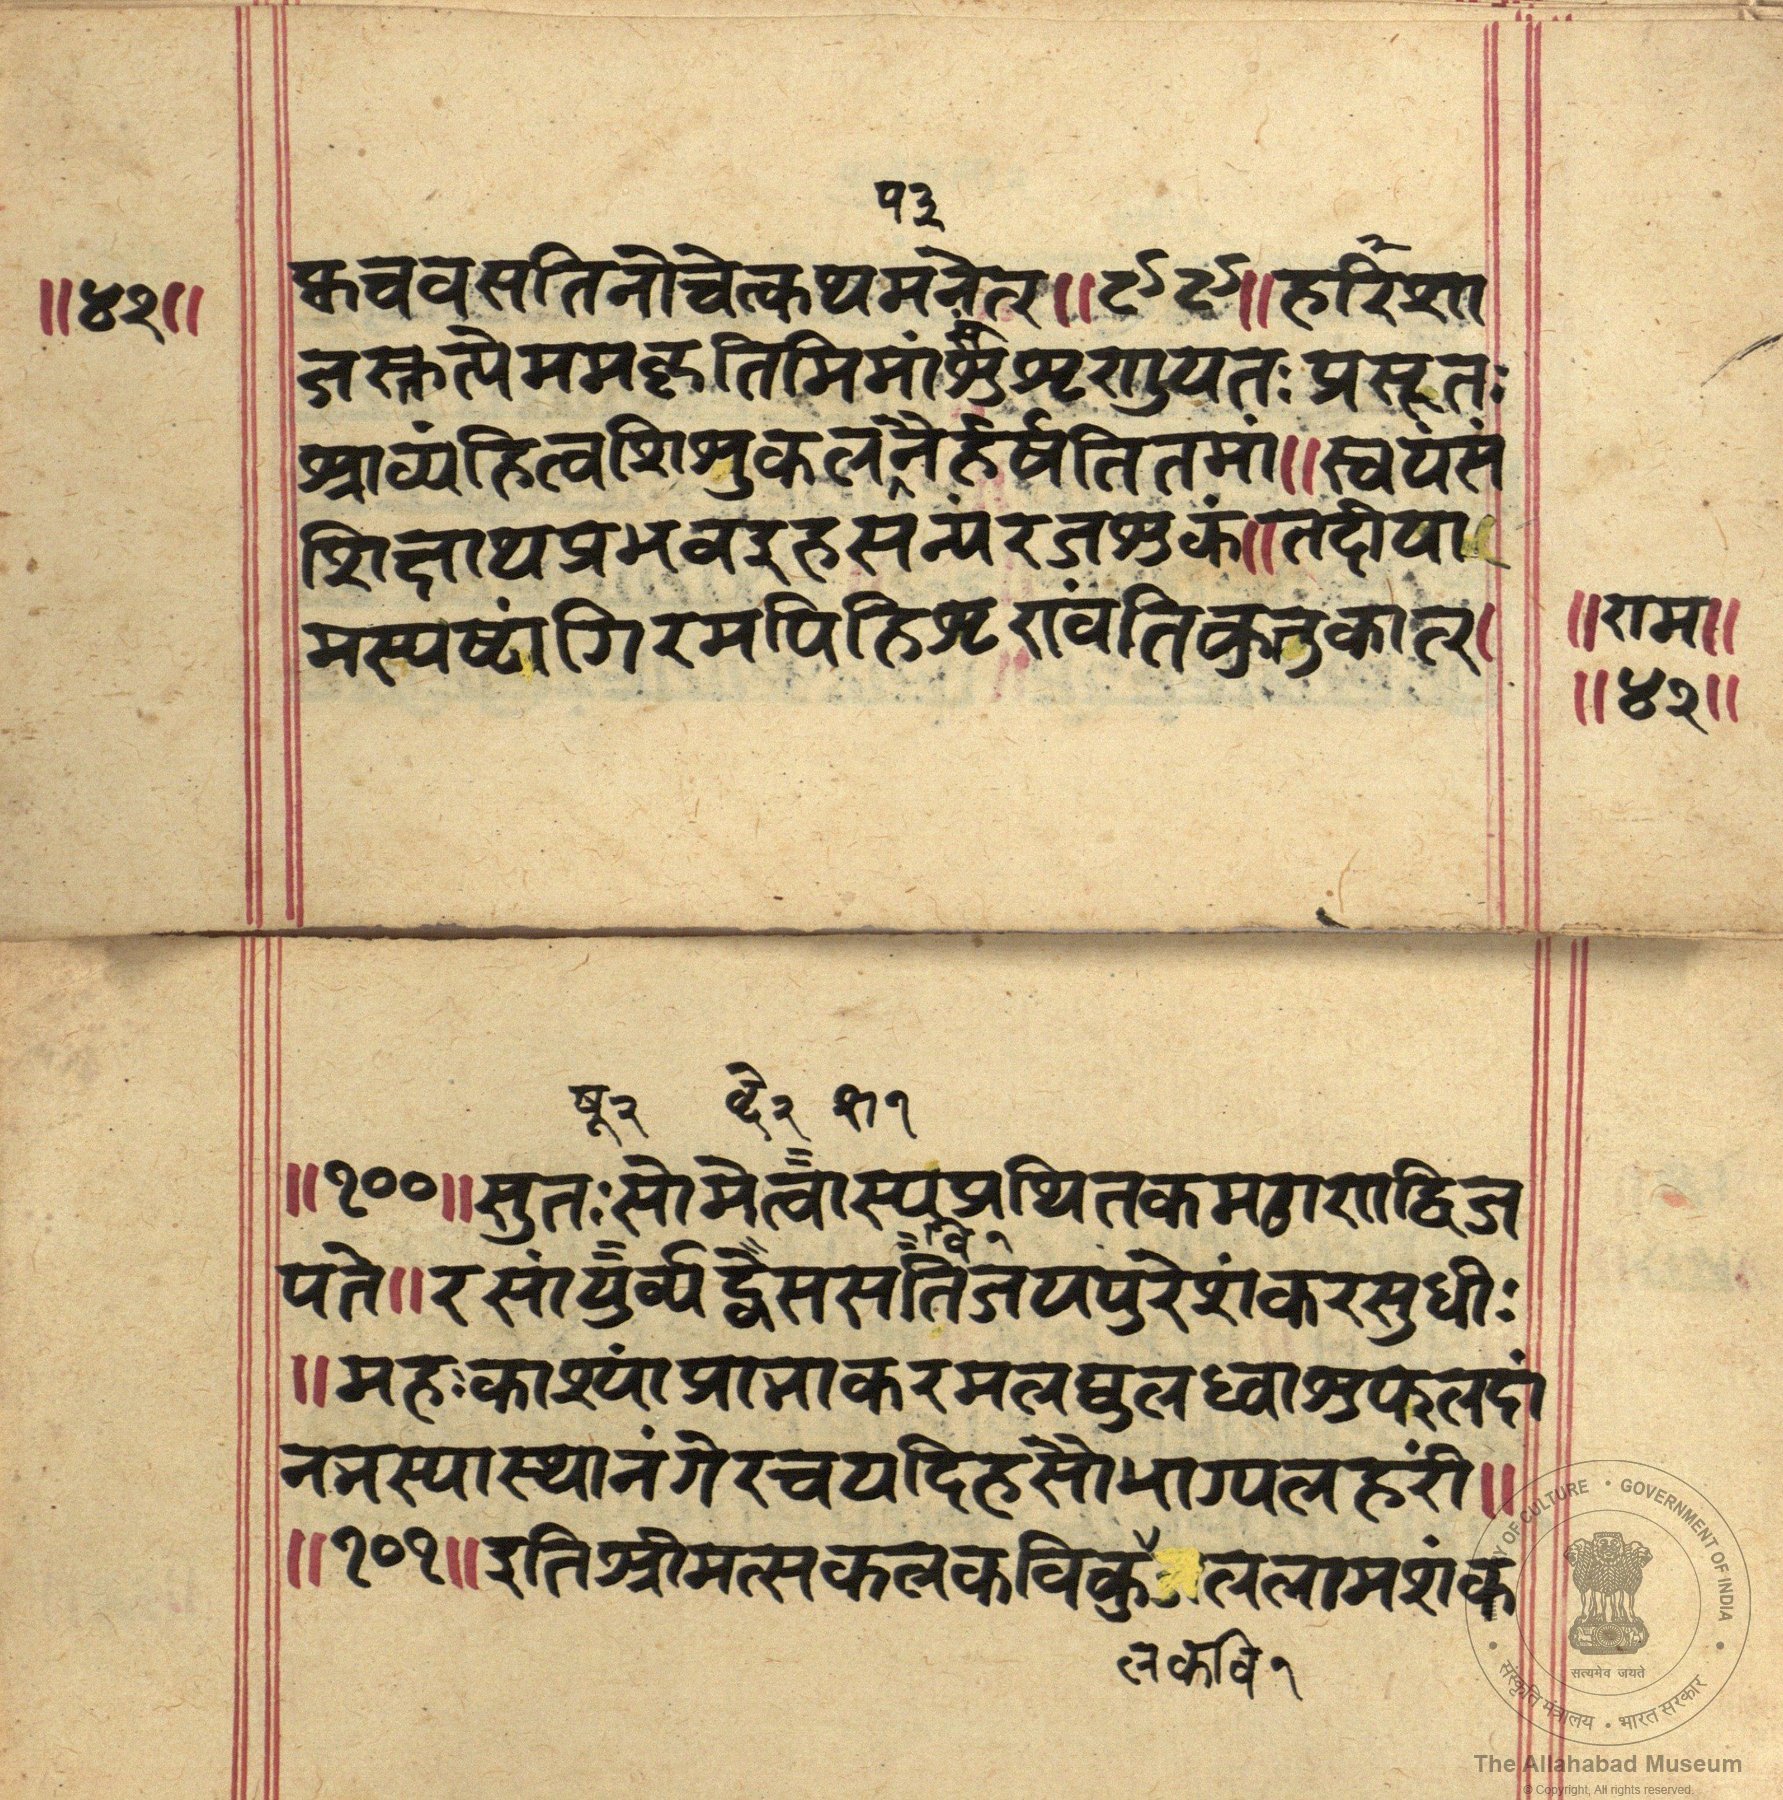 १३
क्वचवसतिनोचेत्कथमनेत्र॥९९॥हरिशा
॥४२॥
नस्तत्पैममकृतिमिमांश्रृणुयतःप्रसूत
श्राव्यंहित्वशिशुकलनैर्हर्षतितमां॥स्वयंसं
शिक्षाथप्रभवइहसन्यंरजशुकं॥तदीया
मस्पष्टांगिरमपिहिशृरांवतिकुतुकात्र
॥राम॥
॥४२॥
षू२ द्वे२ श१
॥१००॥सुतःसोमेत्वास्पप्रथितकमठाशाद्विज
वि१
पते॥रसांयुर्व्यद्वैससतिजयपुरेशंकरसुधीः
॥महःकाश्यांप्रामाकरमलघुलध्वाशुफलदां
ननस्यास्थानंगेरचयदिहसौभाग्यलहरीं॥
॥१०१॥इतिश्रीमत्सकलकविकुललामशंक
लकवि१
MINISTRY OF CULTURE • GOVERNMENT OF INDIA
सत्यमेव जयते
संस्कृति मंत्रालय • भारत सरकार
The Allahabad Museum
© Copyright, All rights reserved.